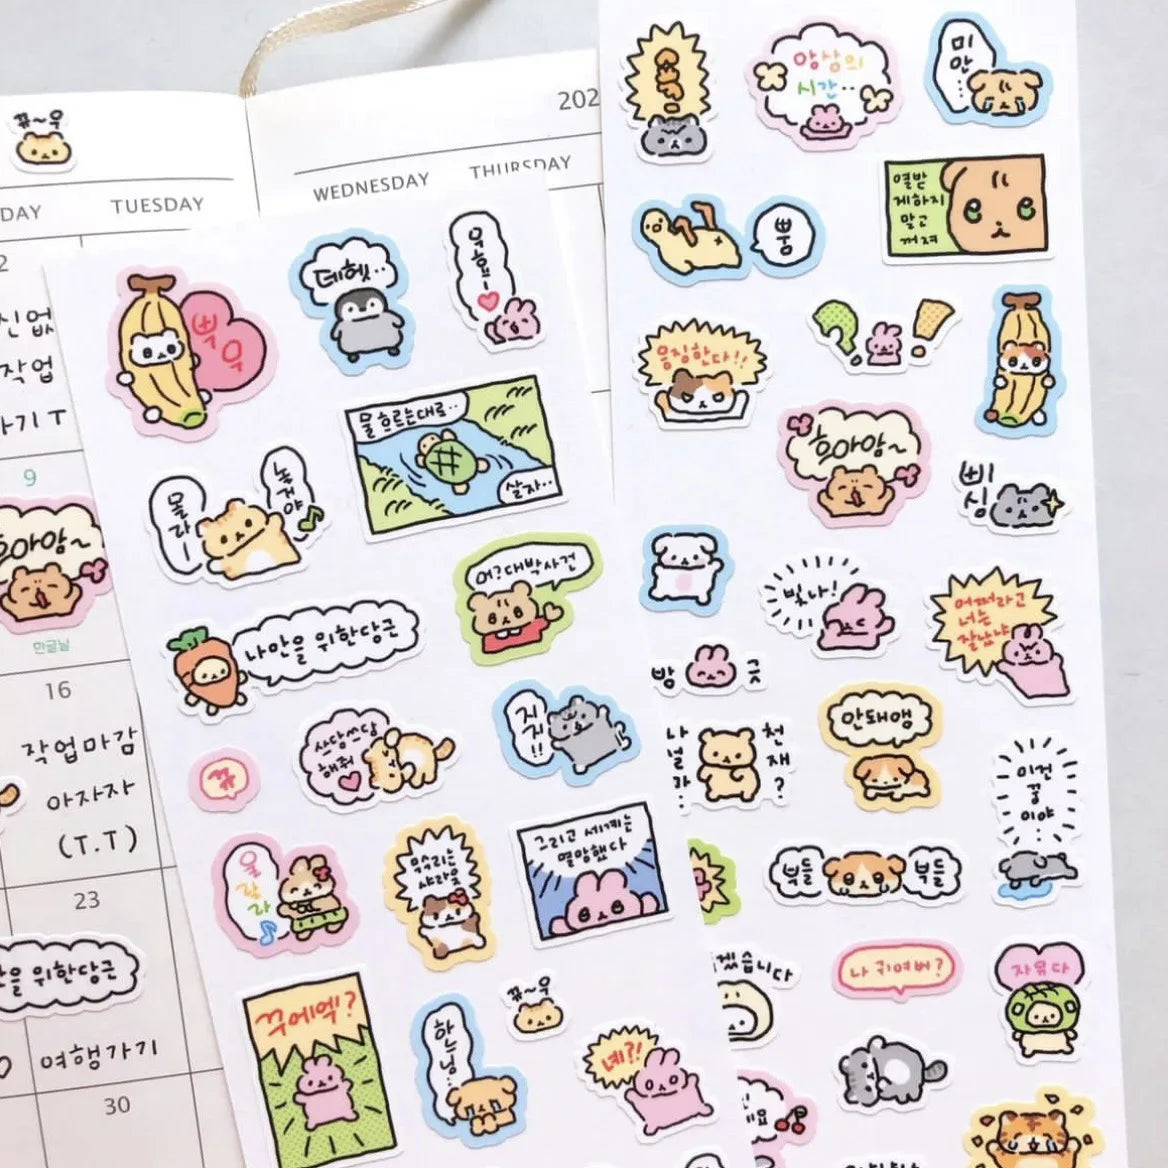 뀨~우
202
DAY
TUESDAY
WEDNESDAY
THURSDAY
2
신 없
작업
가기 T
9
호아암~
한글날
16
작업마감
아자자
(T.T)
23
을 위한당근
여행가기
30
뿌우
데헷..
우효ー
물흐르는대로..
살자..
몰라ー
놀거야
어?대박사건
나만을 위한당근
쓰담쓰담
해줘
지지!!
뀨
울랄라
묵직하는
샤라웃
그리고 세계는
멸망했다
꾸에엑?
하느님..
뀨~우
녜?!
앙상의
시간..
미안...
뿜
열받
게하지
말고
꺼져
응징한다!!
호아암~
삐싱
빛나!
어쩌라고
너는
잘났냐
방긋
나 널라..
천재?
안돼앵
이건
꿈
이야..
부들
부들
겠습니다
나 귀여버?
자유다